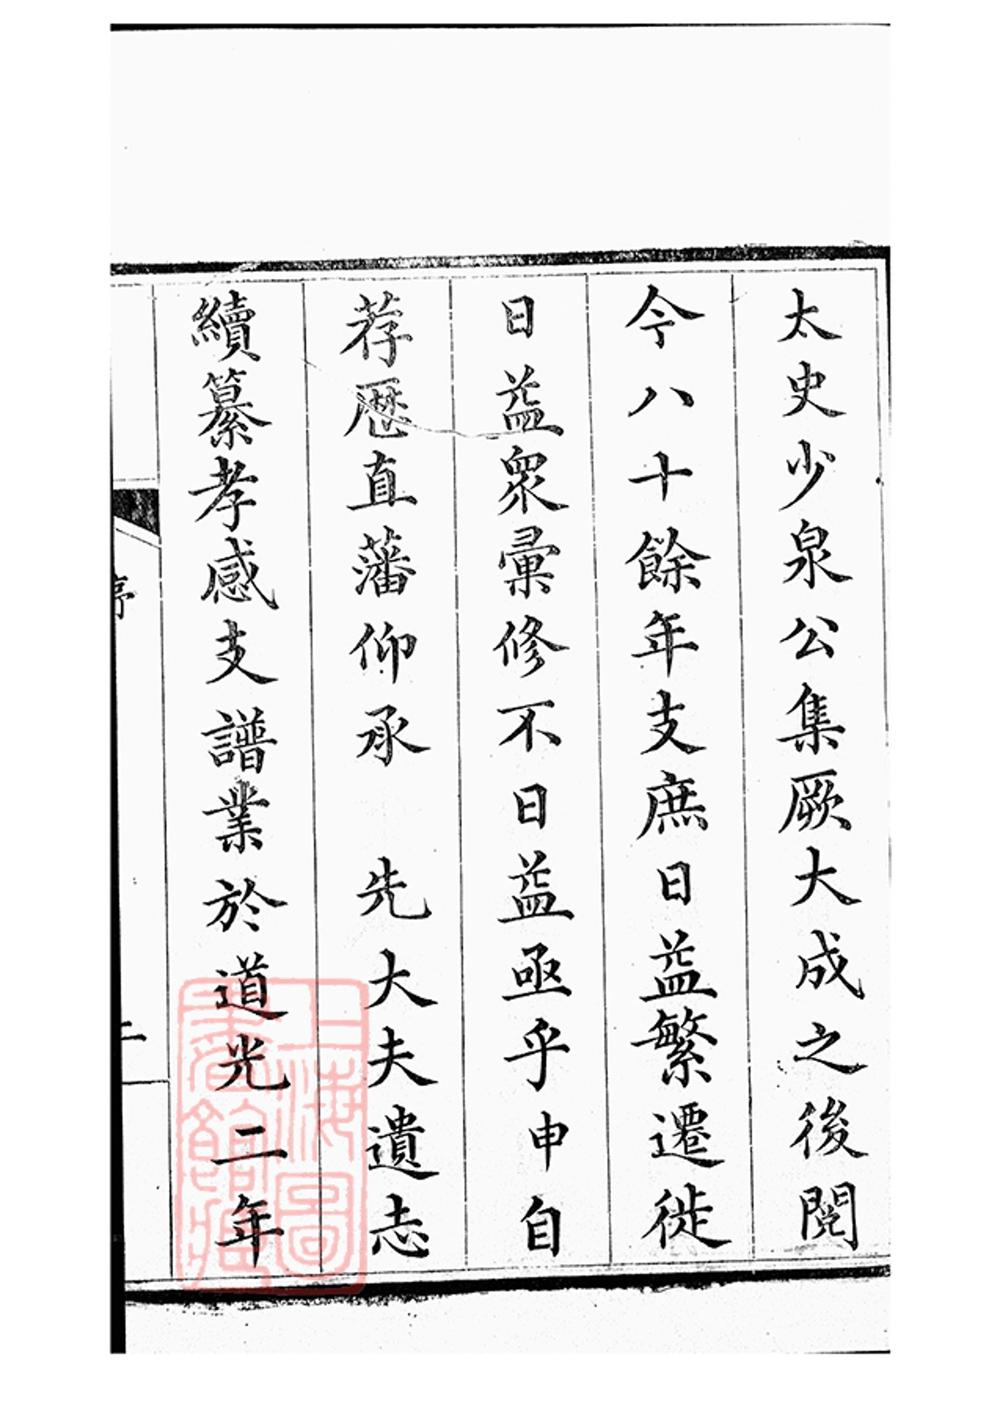 太史少泉公集厥大成之後閱
今八十餘年支庶日益繁遷徙
日益眾彙修不日益亟乎申自
荐歷直藩仰承　先大夫遺志
續纂孝感支譜業於道光二年
序
二
上海圖書館藏